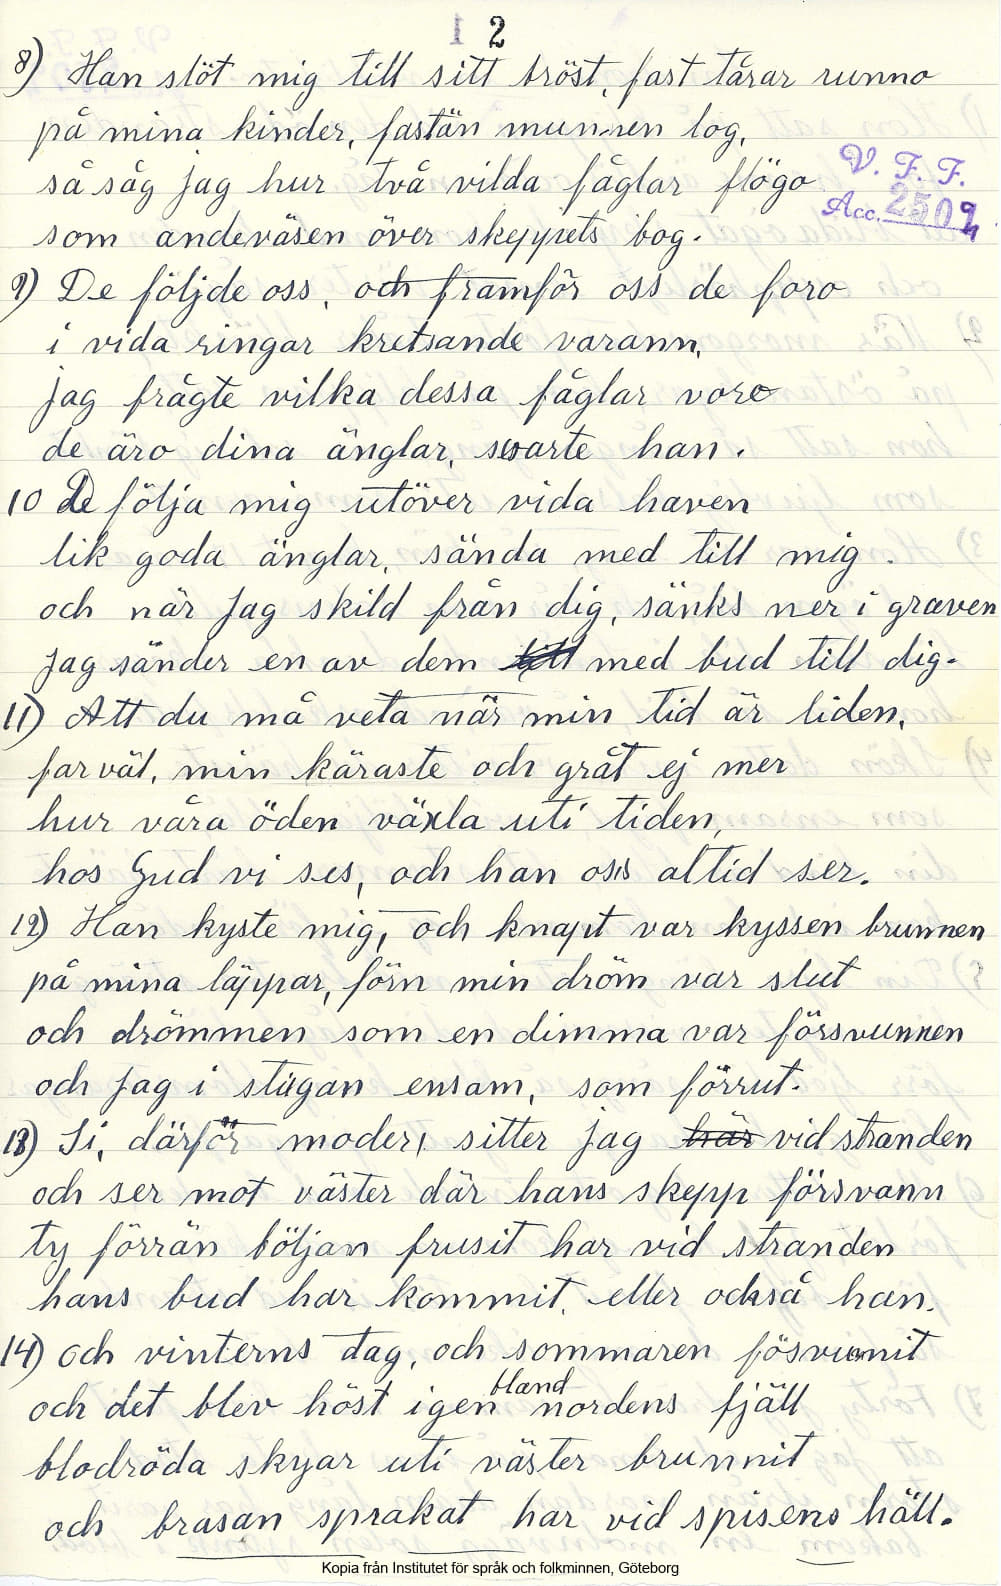 1 2
8) Han slöt mig till sitt bröst, fast tårar runno
på mina kinder, fastän munnen log,
så såg jag hur två vilda fåglar flögo
V. F. F.
Acc. 2502
som andeväsen över skeppets bog.
9) De följde oss, och framför oss de foro
i vida ringar kretsande varann,
jag frågte vilka dessa fåglar voro
de äro dina änglar, swarte han.
10 De följa mig utöver vida haven
lik goda änglar, sända med till mig.
och när jag skild från dig, sänks ner i graven
jag sänder en av dem till med bud till dig.
11) Att du må veta när min tid är liden,
farväl, min käraste och gråt ej mer
hur våra öden växla uti tiden,
hos Gud vi ses, och han oss altid ser.
12) Han kyste mig, och knapt var kyssen brunnen
på mina läppar, förn min dröm var slut
och drömmen som en dimma var försvunnen
och jag i stugan ensam, som förrut.
13) Si, därför moder, sitter jag här vid stranden
och ser mot väster där hans skepp försvann
ty förrän böljan frusit har vid stranden
hans bud har kommit, eller också han.
14) och vinterns dag, och sommaren fösvunnit
och det blev höst igen bland nordens fjäll
blodröda skyar uti väster brunnit
och brasan sprakat har vid spisens häll.
Kopia från Institutet för språk och folkminnen, Göteborg